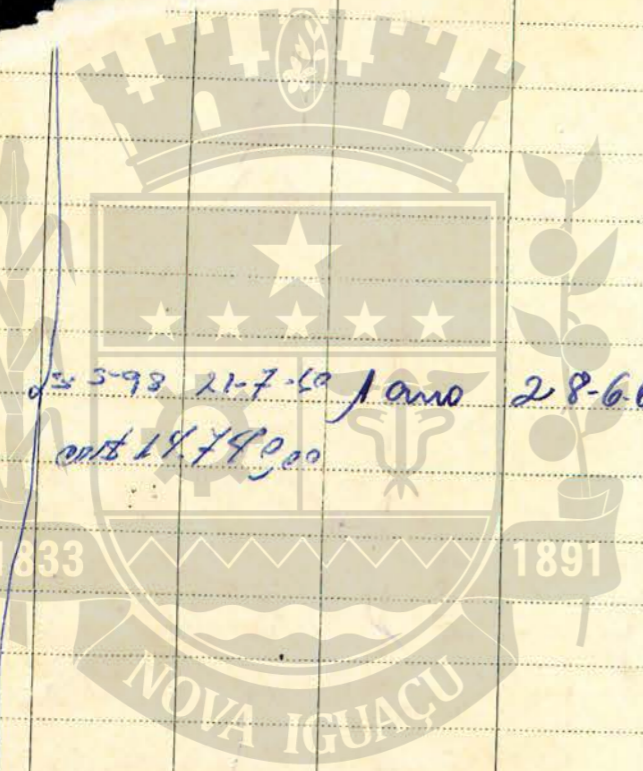 5-98 21-7-60 1 ano 28-6-6
14.740,00
1833 1891
NOVA IGUAÇU